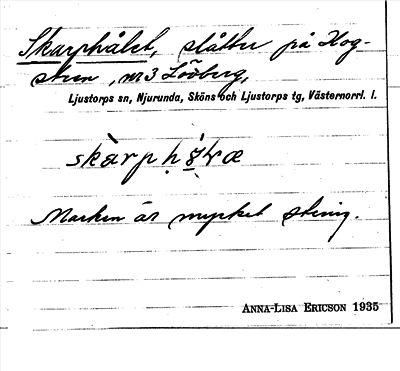 Skarphålet, slåtter på Hog-
sten, nr 3 Lövberg,
Ljustorps sn, Njurunda, Sköns och Ljustorps tg, Västernorrl. l.
Marken är mycket stenig.
ANNA-LISA ERICSON 1935